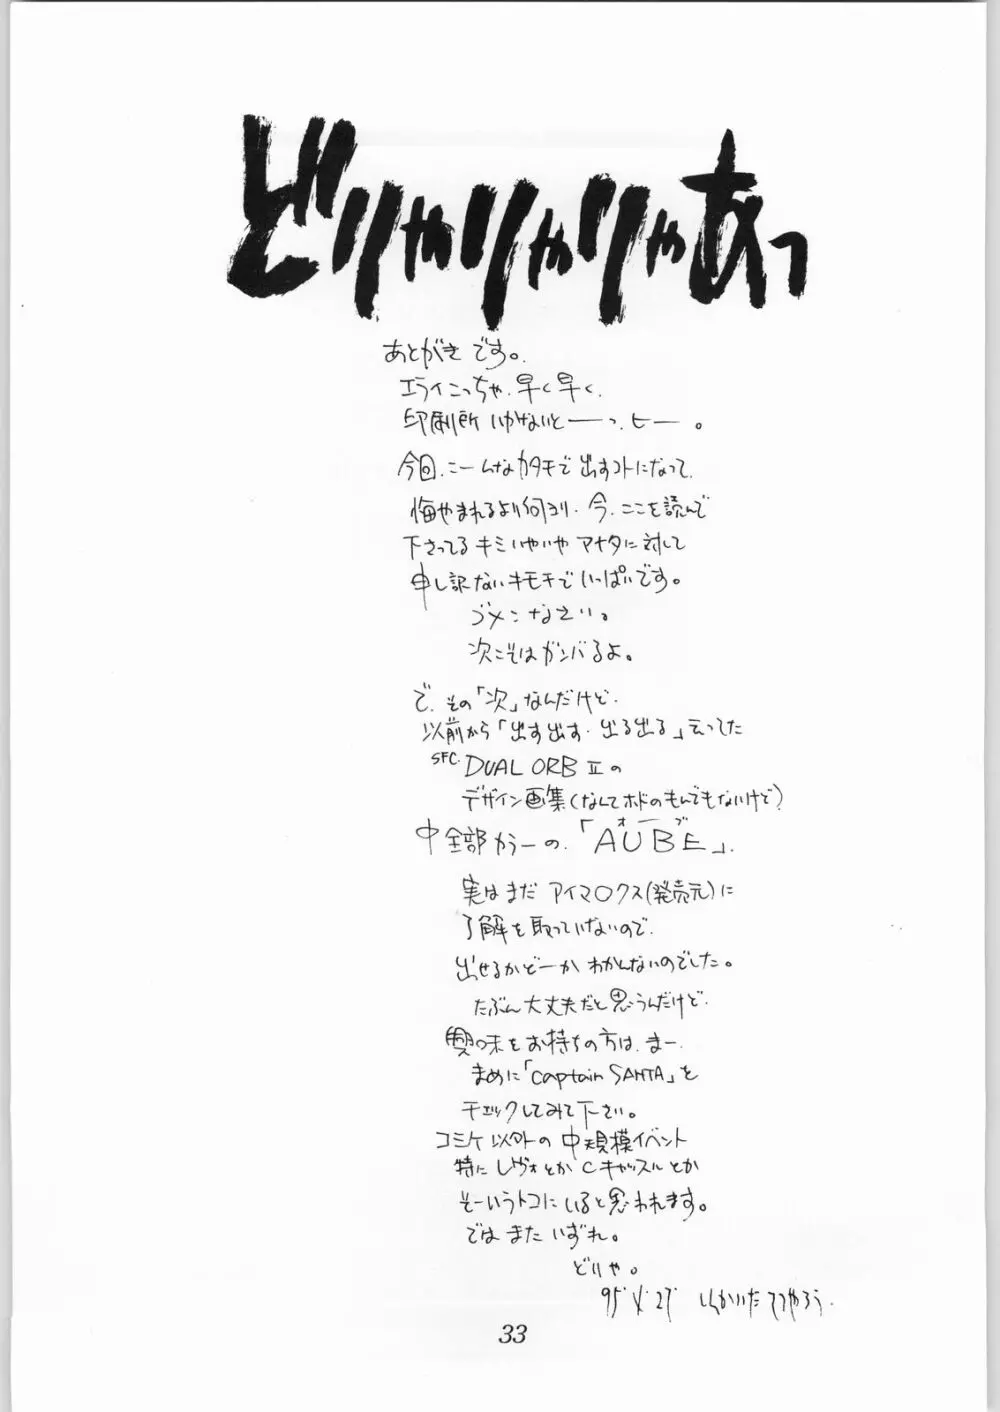 どりゃりゃりゃあっ
あとがきです。
エライこっちゃ、早く早く、
印刷所いかないと――っ、ヒー。
今回、こーんなカタチで出すコトになって、
悔やまれるより何より、今、ここを読んで
下さってるキミいやいやアナタに対して
申し訳ないキモチでいっぱいです。
ゴメンなさい。
次こそはガンバるよ。
で、その「次」なんだけど、
以前から「出す出す・出る出る」云ってた
SFC. DUAL ORB IIの
デザイン画集(なんてホドのもんでもないけど)
中全部カラーの、「AUBE」、
オーブ
実はまだアイマ○クス(発売元)に
了解を取っていないので、
出せるかどーかわかんないのでした。
たぶん大丈夫だと思うんだけど、
興味をお持ちの方は、まー、
まめに「Captain SANTA」を
チェックしてみて下さい。
コミケ以外の中規模イベント
特にレヴォとかCキャッスルとか
そーいうトコにいると思われます。
ではまたいずれ。
どりゃ。
95.4.27
33